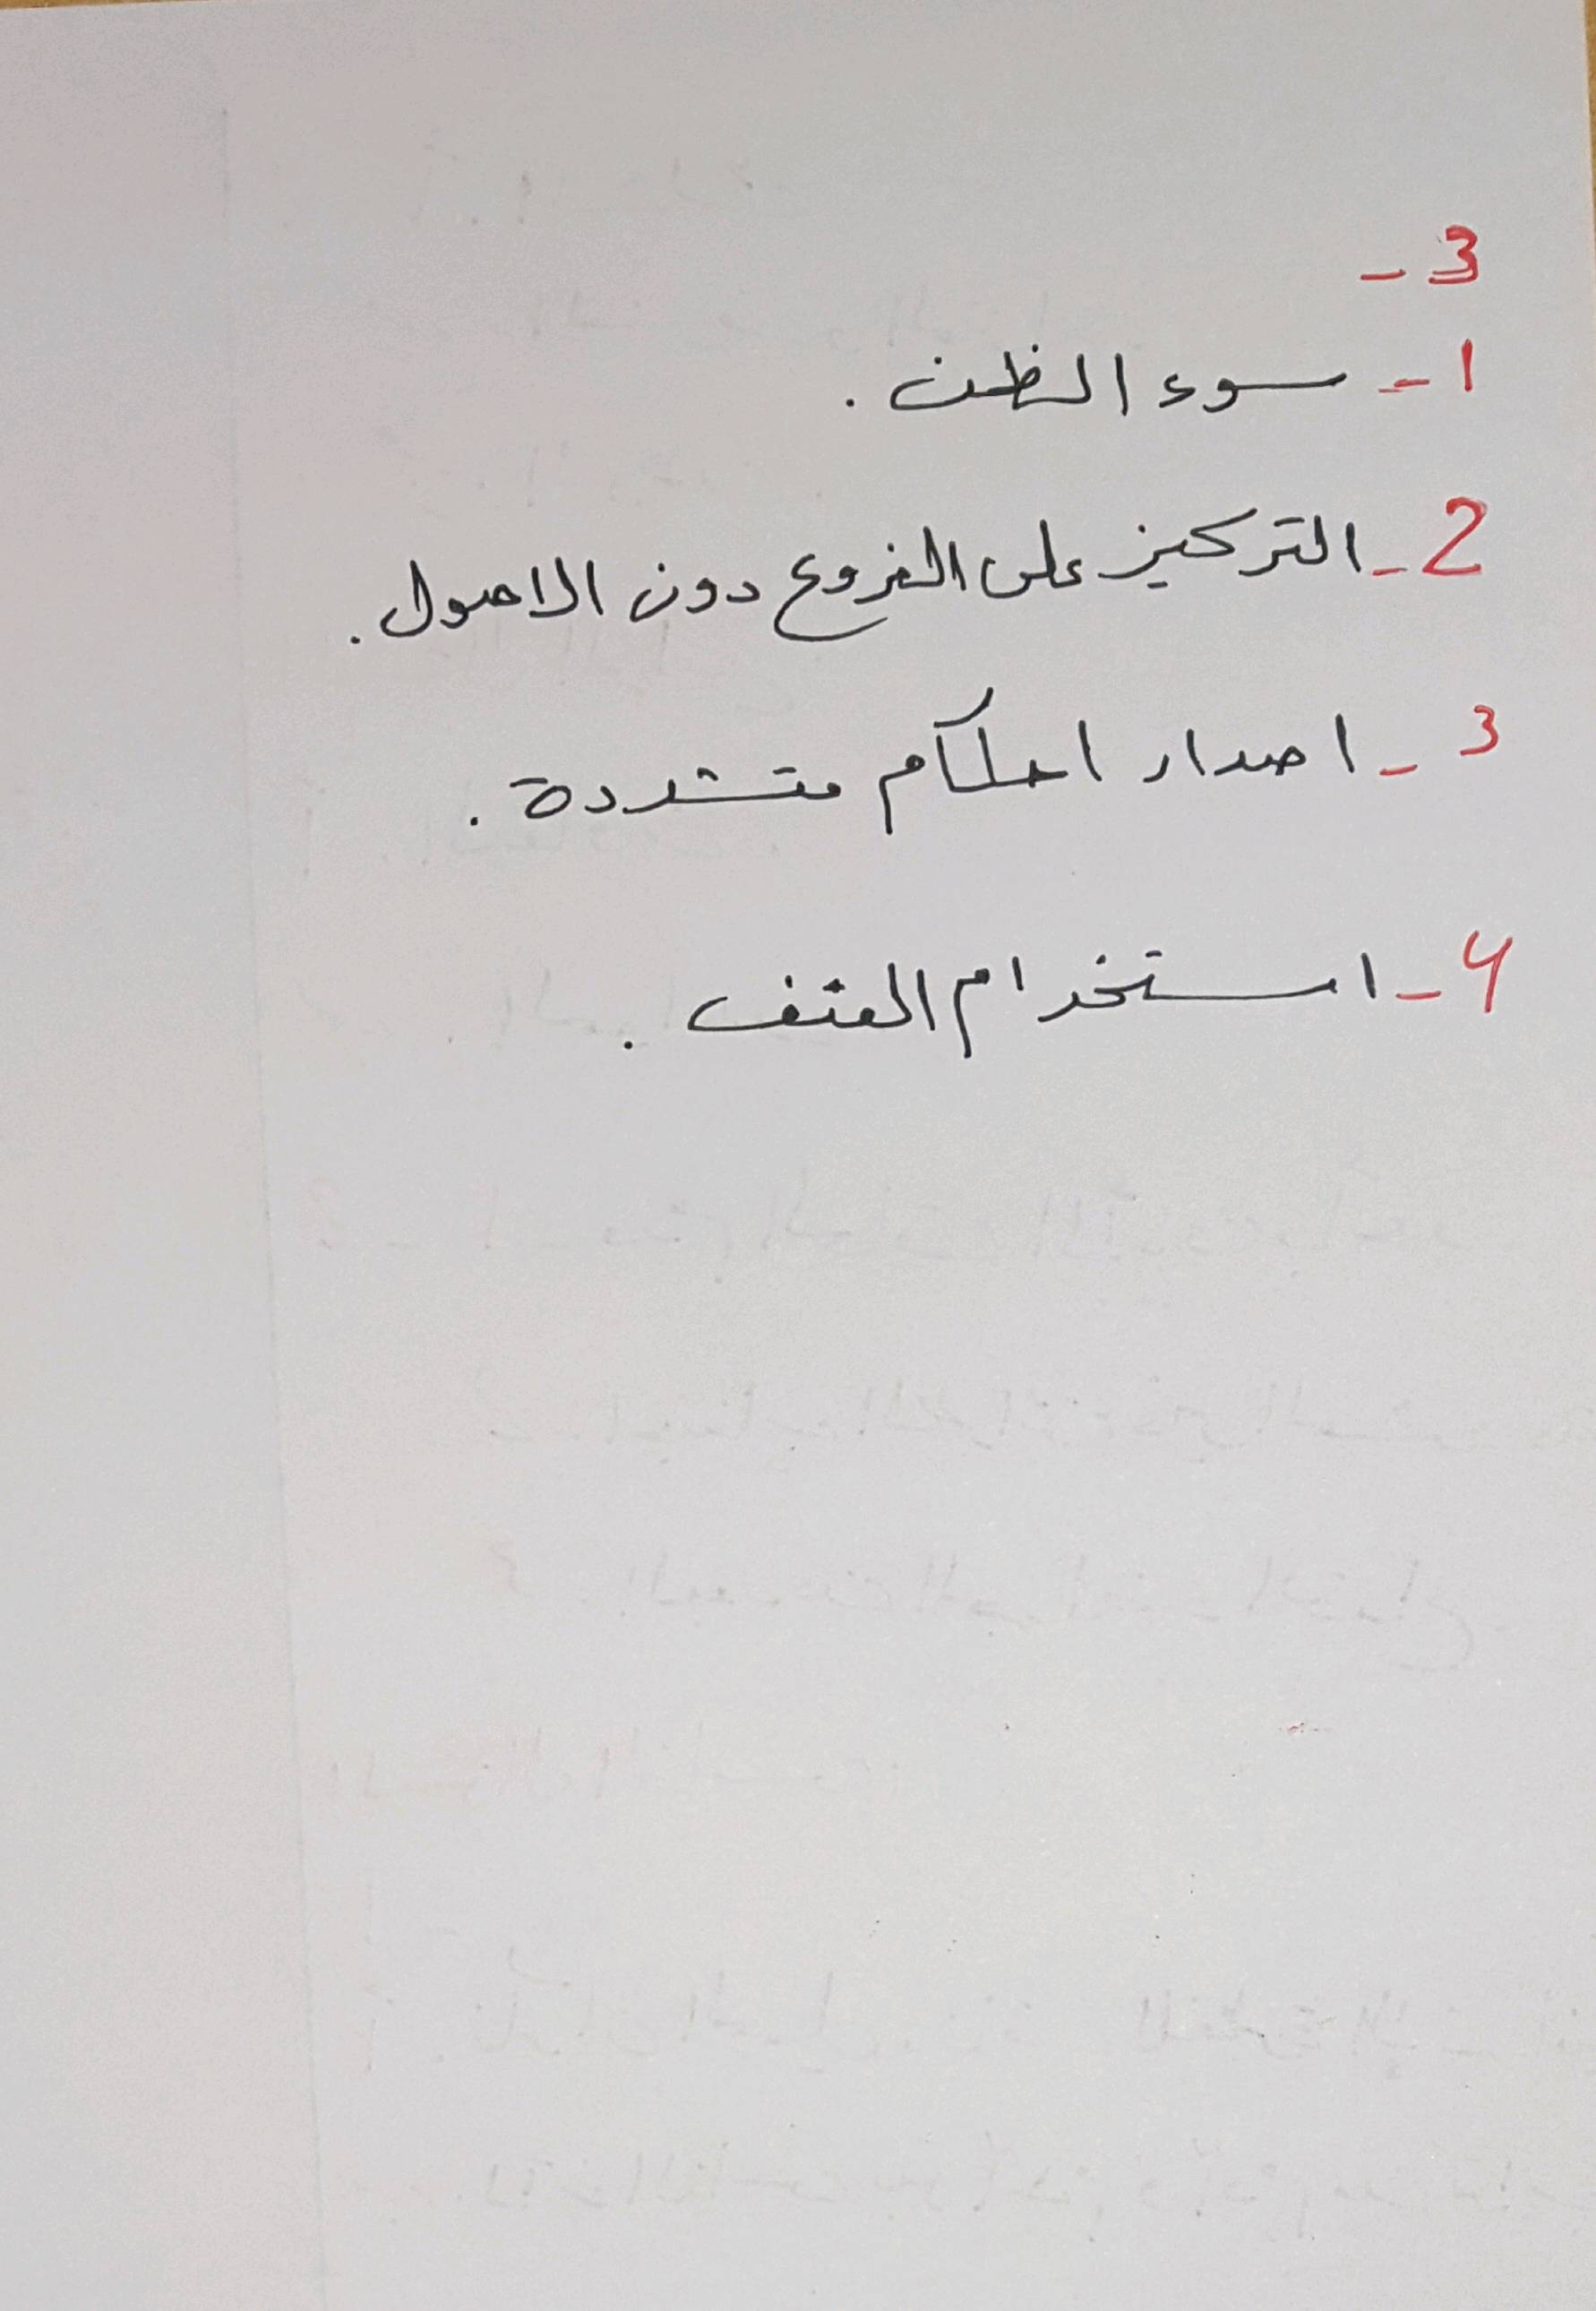 3 -
1 - سوء الظن .
2 - التركيز على الفروع دون الاصول .
3 - اصدار احكام متشددة .
4 - استخدام العنف .